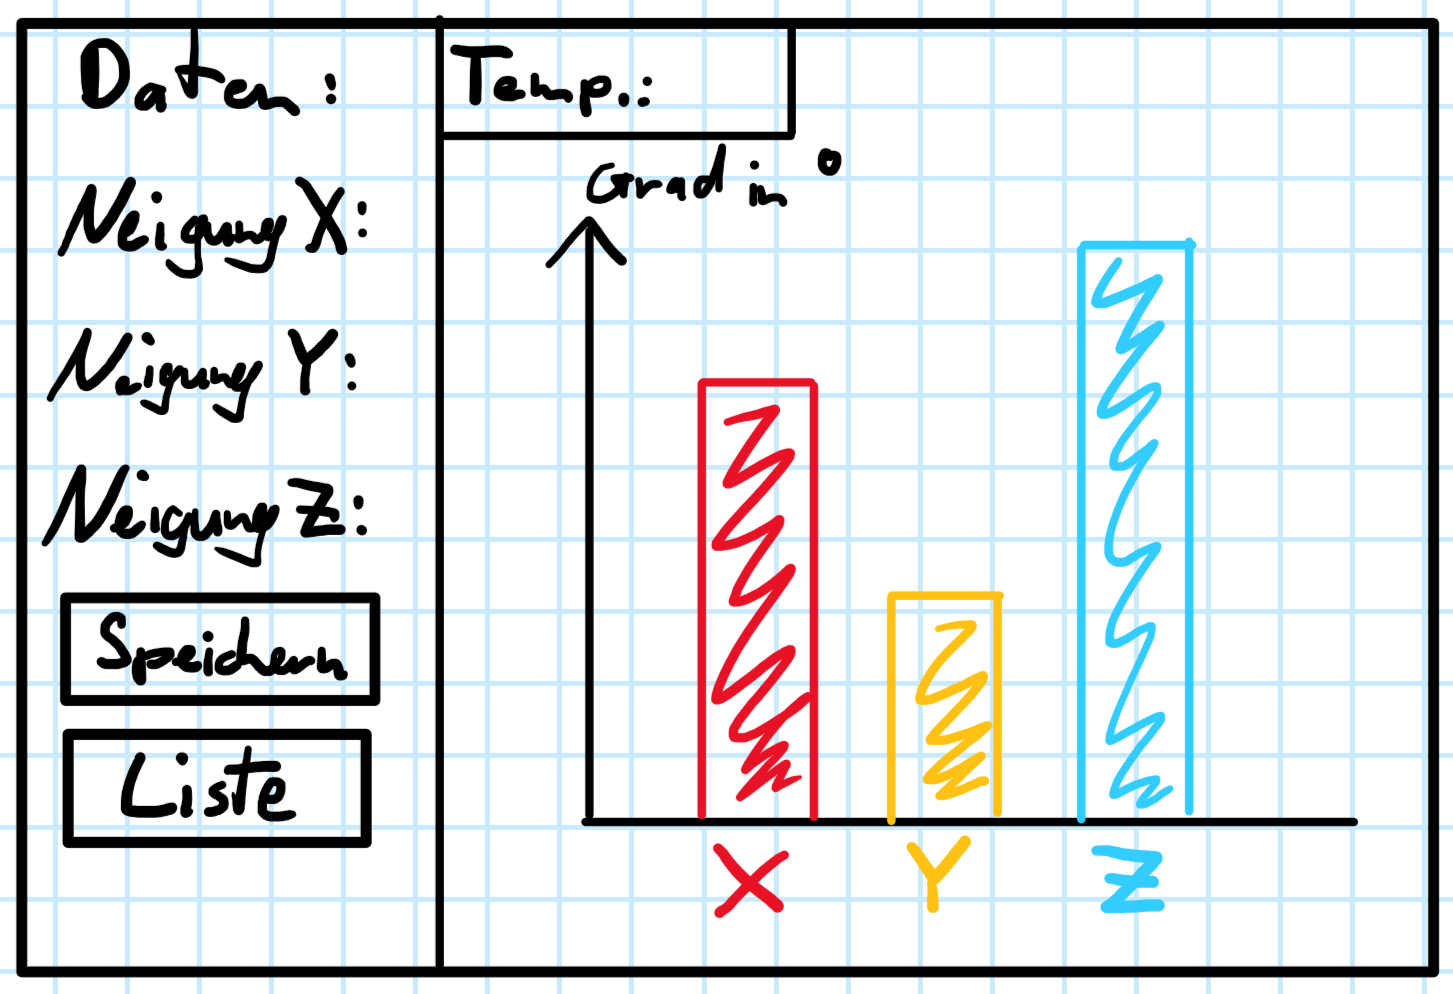 Daten:
Neigung X:
Neigung Y:
Neigung Z:
Speichern
Liste
Temp.:
Grad in °
X Y Z